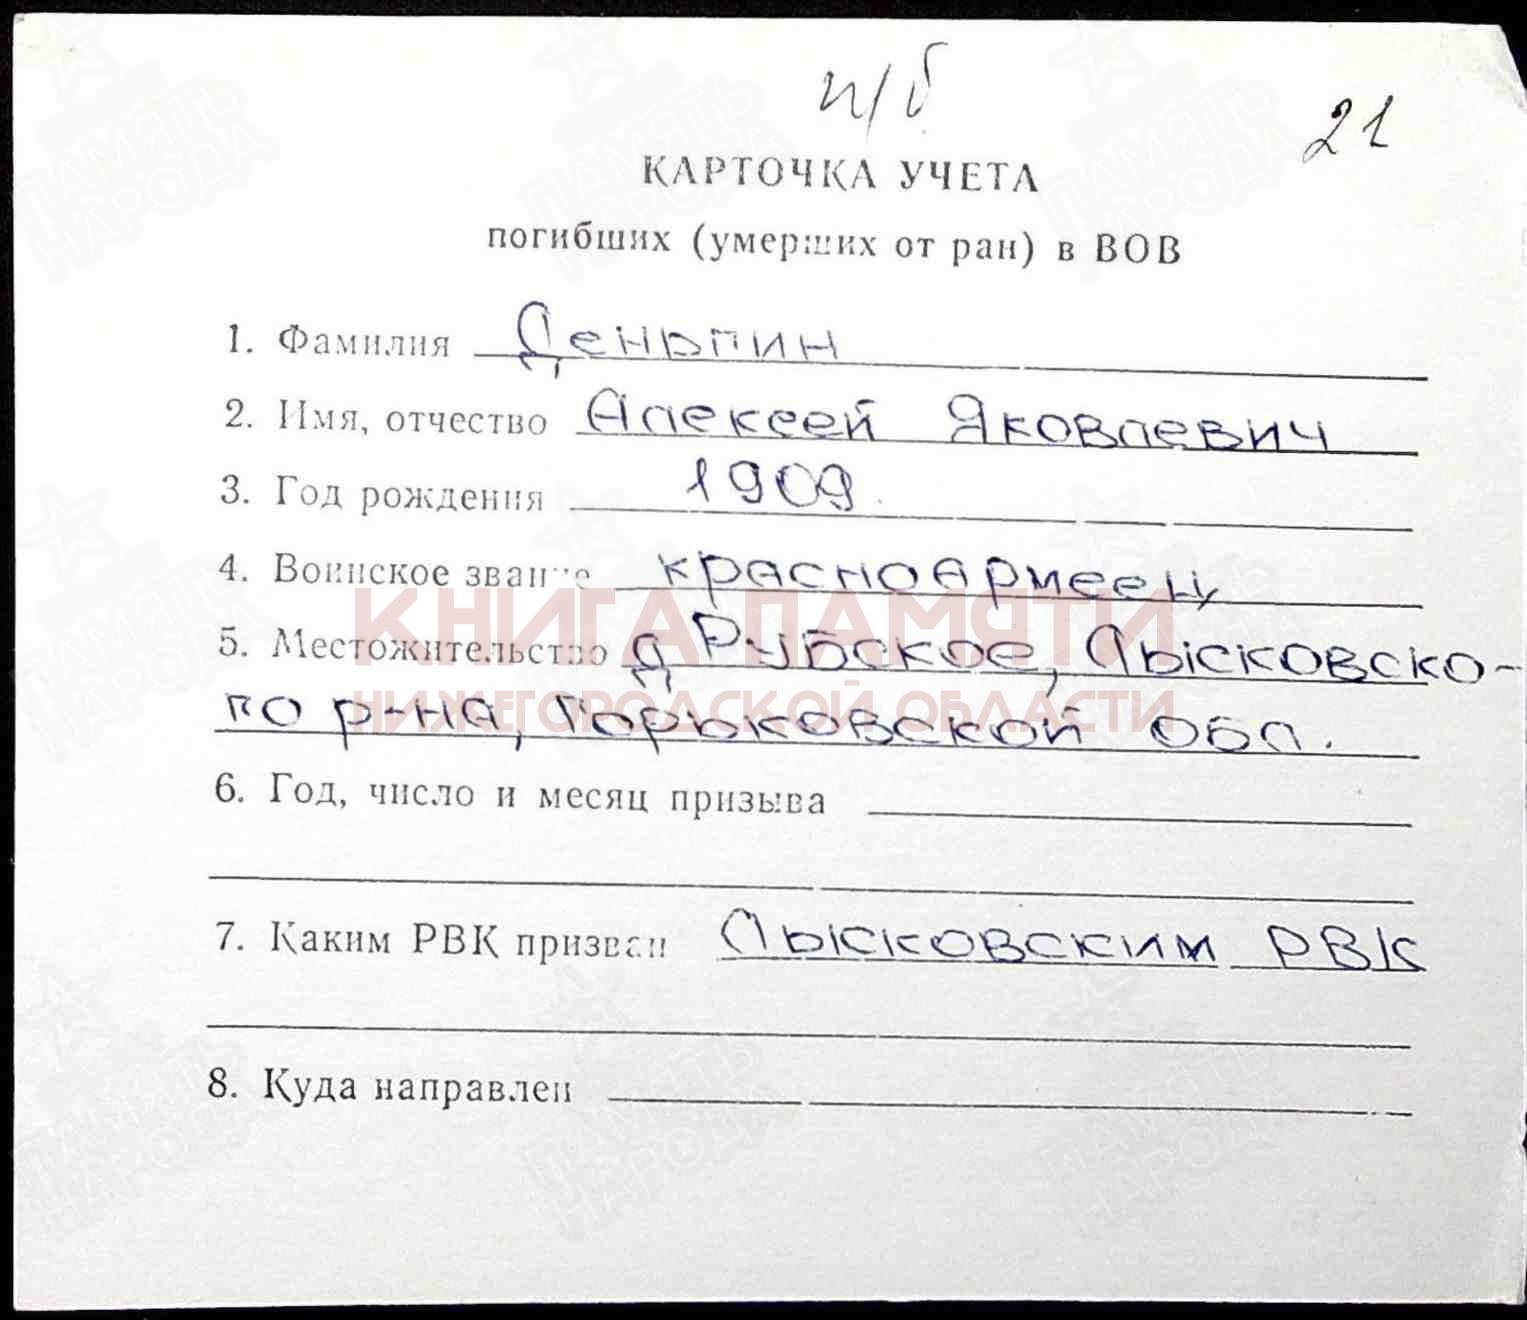 п/б
21
КАРТОЧКА УЧЕТА
погибших (умерших от ран) в ВОВ
1. Фамилия Деньгин
2. Имя, отчество Алексей Яковлевич
3. Год рождения 1909.
4. Воинское звание красноармеец
5. Местожительство д Рубское, Лысковско-
го р-на, Горьковской обл.
КНИГА ПАМЯТИ
НИЖЕГОРОДСКОЙ ОБЛАСТИ
6. Год, число и месяц призыва
7. Каким РВК призван Лысковским РВК
8. Куда направлен